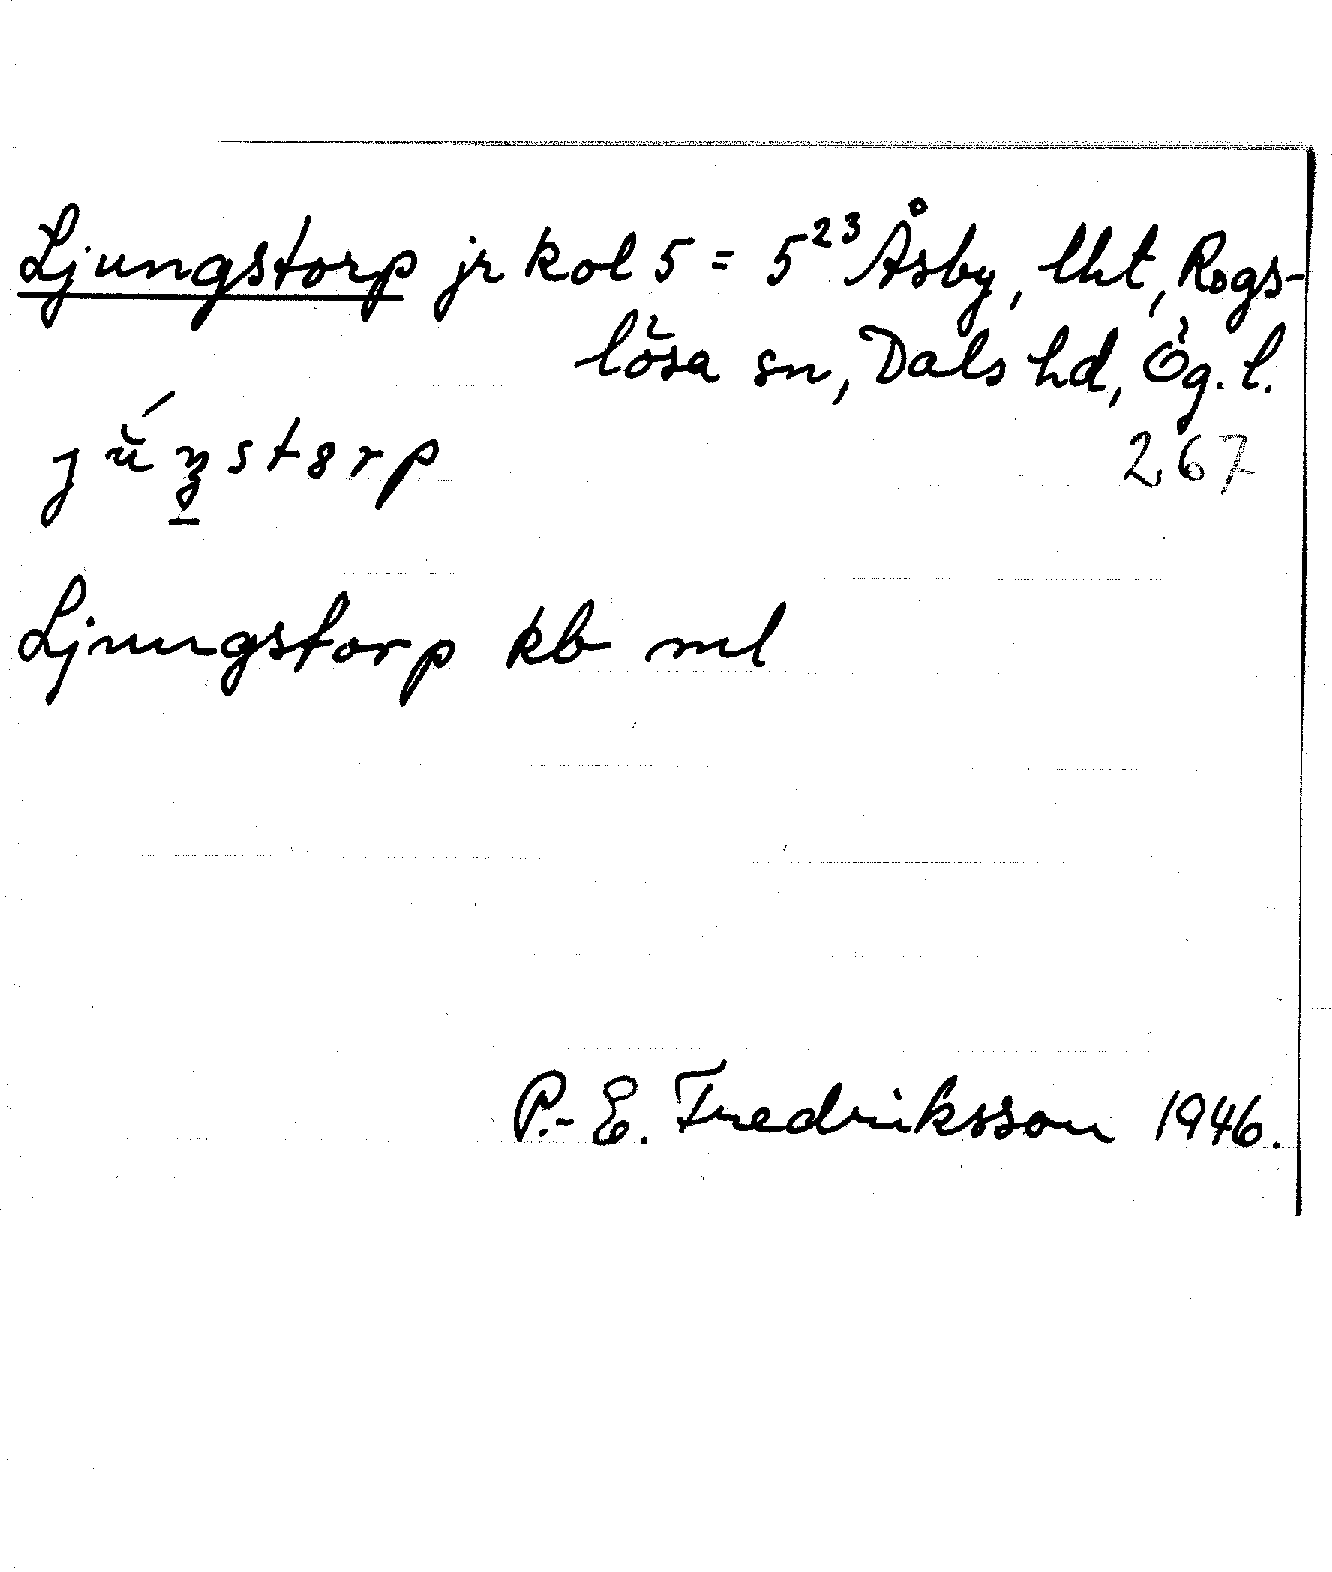 Ljungstorp jr kol 5 = 5²³ Åsby, lht, Rogs-
lösa sn, Dals hd, Ög. l.
267
Ljungstorp kb ml
P.-E. Fredriksson 1946.